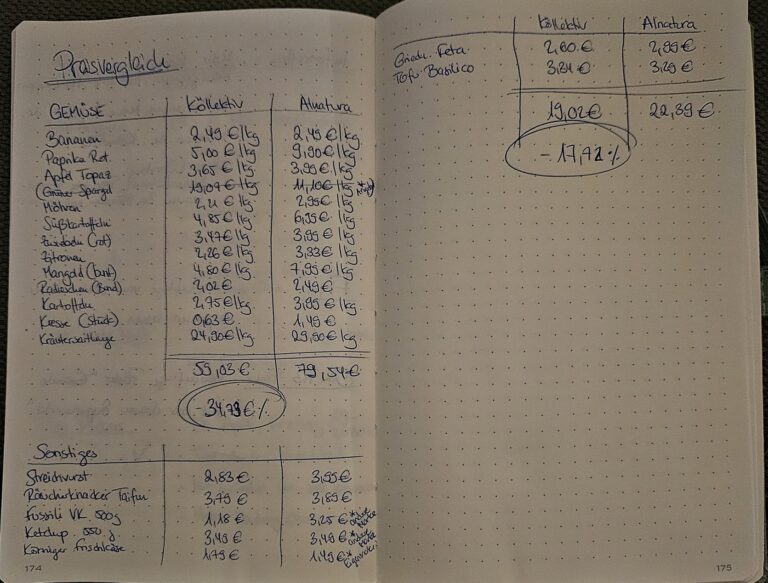 Preisvergleich
GEMÜSE Köllektiv Alnatura
Bananen 2,49 €/kg 2,49 €/kg
Paprika Rot 5,00 €/kg 9,90 €/kg
Apfel Topaz 3,65 €/kg 3,99 €/kg
(Grüner Spargel 19,07 €/kg 11,10 €/kg
Möhren 2,21 €/kg 2,99 €/kg
Süßkartoffeln 4,85 €/kg 6,99 €/kg
Zwiebeln (rot) 3,47 €/kg 3,99 €/kg
Zitronen 2,26 €/kg 3,33 €/kg
Mangold (bunt) 4,80 €/kg 7,99 €/kg
Radieschen (Bund) 2,02 € 2,49 €
Kartoffeln 2,75 €/kg 3,99 €/kg
Kresse (Stück) 0,63 € 1,49 €
Kräutersaitlinge 24,90 €/kg 29,90 €/kg
59,03 € 79,54 €
- 34,79 € %
Sonstiges
Streichwurst 2,83 € 3,99 €
Räucherknacker Taifun 3,79 € 3,89 €
Fussili VK 500g 1,18 € 3,25 € * andere Marke
Ketchup 550 g 3,49 € 3,49 € * andere Marke
Körniger Frischkäse 1,79 € 1,49 € * Eigenmarke
174
Köllektiv Alnatura
Griech. Feta 2,60 € 2,99 €
Tofu Basilico 3,34 € 3,29 €
19,02 € 22,39 €
- 17,72 %
175